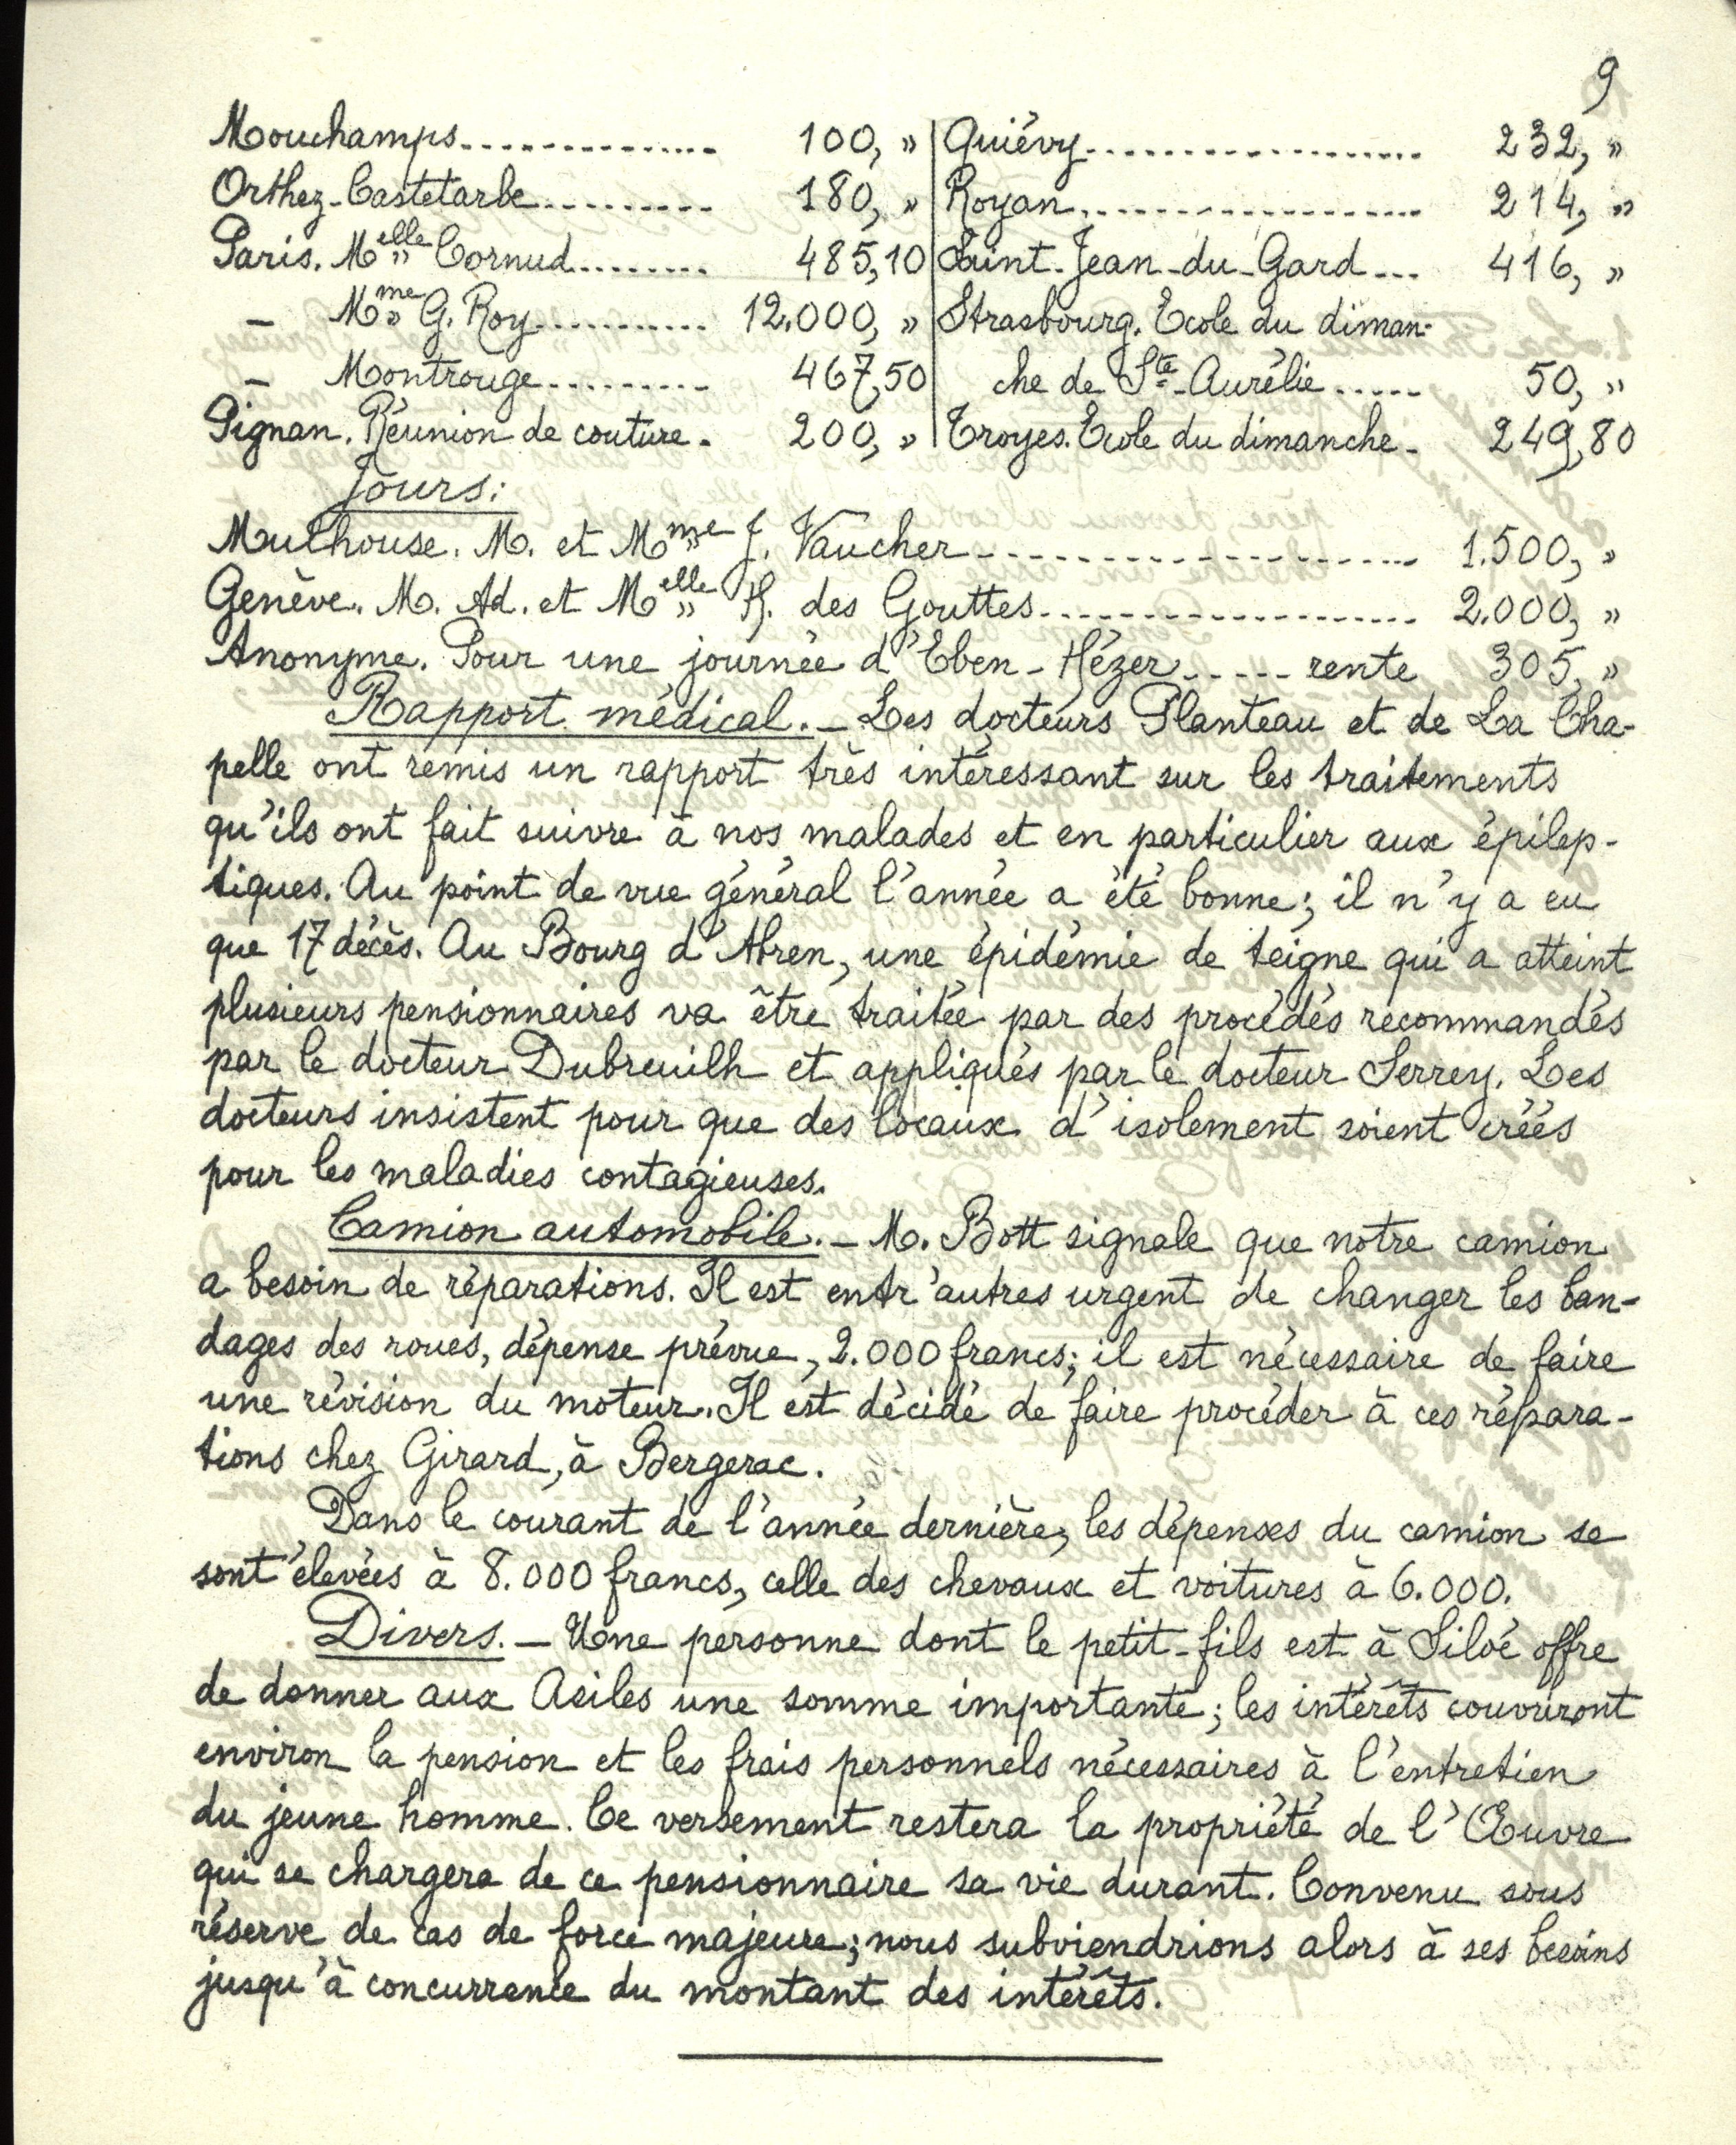 9
Mouchamps............... 100, » | Quiévy................... 232, »
Orthez-Castetarbe.......... 180, » | Royan................... 214, »
Paris. Melle Cornud........ 485,10 | Saint-Jean-du-Gard... 416, »
— Mme G. Roy........... 12.000, » | Strasbourg. Ecole du diman-
— Montrouge.......... 467,50 | che de Ste-Aurélie...... 50, »
Pignan. Réunion de couture. 200, » | Troyes. Ecole du dimanche. 249,80
Jours:
Mulhouse. M. et Mme J. Vaucher................... 1.500, »
Genève. M. Ad. et Melle H. des Gouttes................... 2.000, »
Anonyme. Pour une journée d'Eben-Hézer..... rente 305, »
Rapport médical. — Les docteurs Planteau et de La Cha-
pelle ont remis un rapport très intéressant sur les traitements
qu'ils ont fait suivre à nos malades et en particulier aux épilep-
tiques. Au point de vue général l'année a été bonne; il n'y a eu
que 17 décès. Au Bourg d'Abren, une épidémie de teigne qui a atteint
plusieurs pensionnaires va être traitée par des procédés recommandés
par le docteur Dubreuilh et appliqués par le docteur Serrey. Les
docteurs insistent pour que des locaux d'isolement soient créés
pour les maladies contagieuses.
Camion automobile. — M. Bott signale que notre camion
a besoin de réparations. Il est entr'autres urgent de changer les ban-
dages des roues, dépense prévue, 2.000 francs; il est nécessaire de faire
une révision du moteur. Il est décidé de faire procéder à ces répara-
tions chez Girard, à Bergerac.
Dans le courant de l'année dernière, les dépenses du camion se
sont élevées à 8.000 francs, celle des chevaux et voitures à 6.000.
Divers. — Une personne dont le petit-fils est à Siloé offre
de donner aux Asiles une somme importante; les intérêts couvriront
environ la pension et les frais personnels nécessaires à l'entretien
du jeune homme. Ce versement restera la propriété de l'Œuvre
qui se chargera de ce pensionnaire sa vie durant. Convenu sous
réserve de cas de force majeure; nous subviendrions alors à ses besoins
jusqu'à concurrence du montant des intérêts.